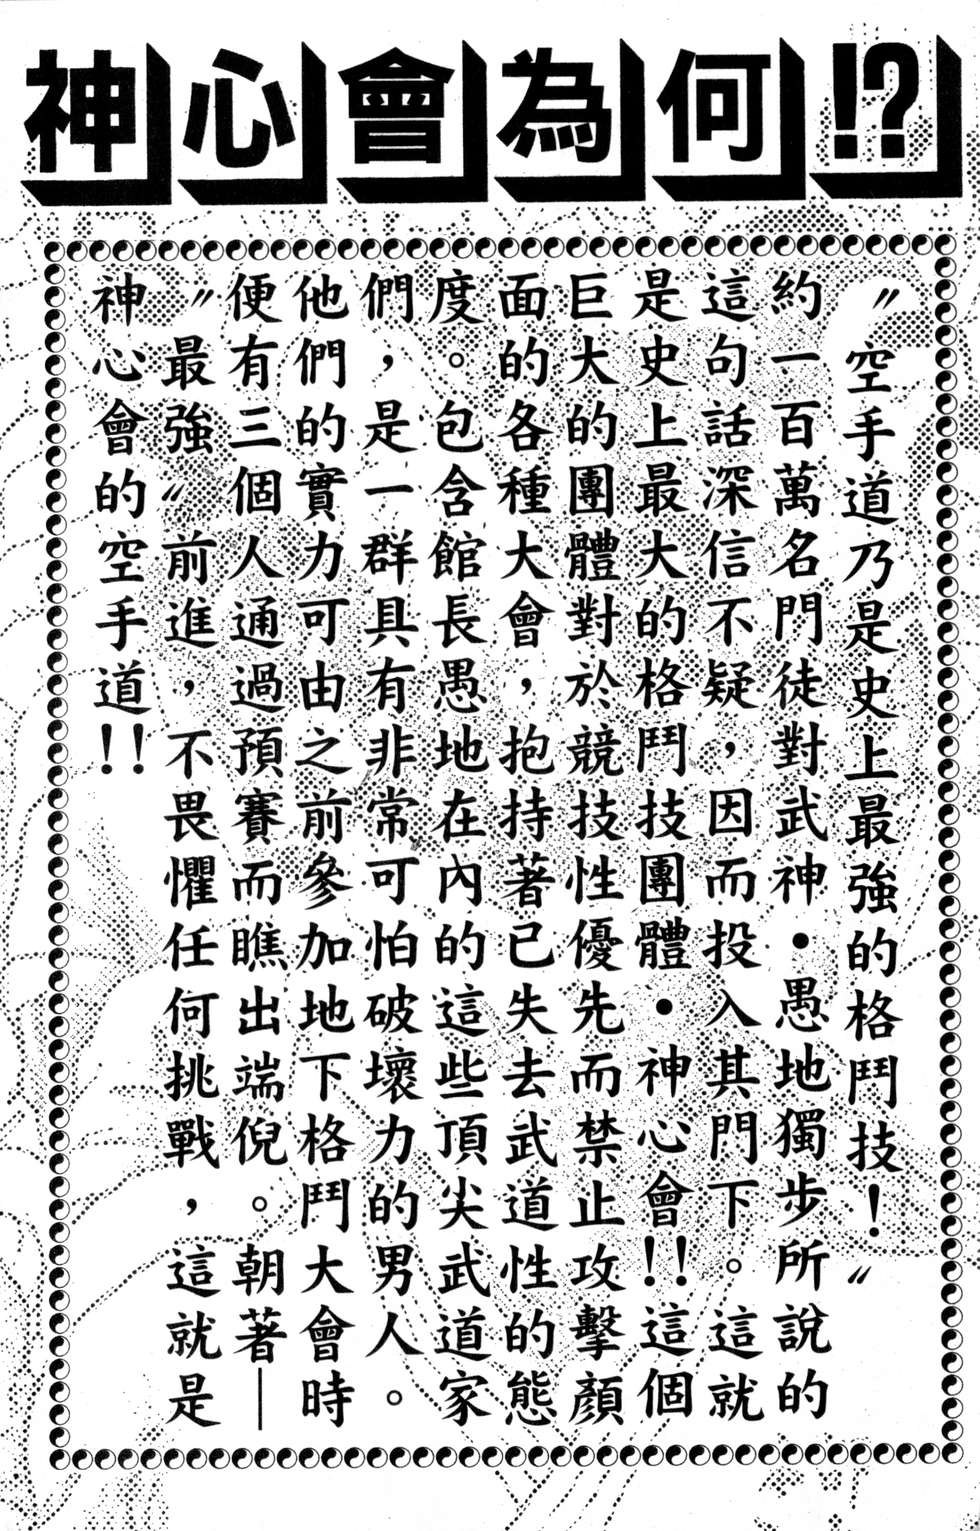 神心會為何!?
〝空手道乃是史上最強的格鬥技！〞
約一百萬名門徒對武神・愚地獨步所說的
這句話深信不疑，因而投入其門下。這就
是史上最大的格鬥技團體・神心會!!這個
巨大的團體對於競技性優先而禁止攻擊顏
面的各種大會，抱持著已失去武道性的態
度。包含館長愚地在內的這些頂尖武道家
們，是一群具有非常可怕破壞力的男人。
他們的實力可由之前參加地下格鬥大會時
便有三個人通過預賽而瞧出端倪。朝著—
〝最強〞前進，不畏懼任何挑戰，這就是
神心會的空手道!!